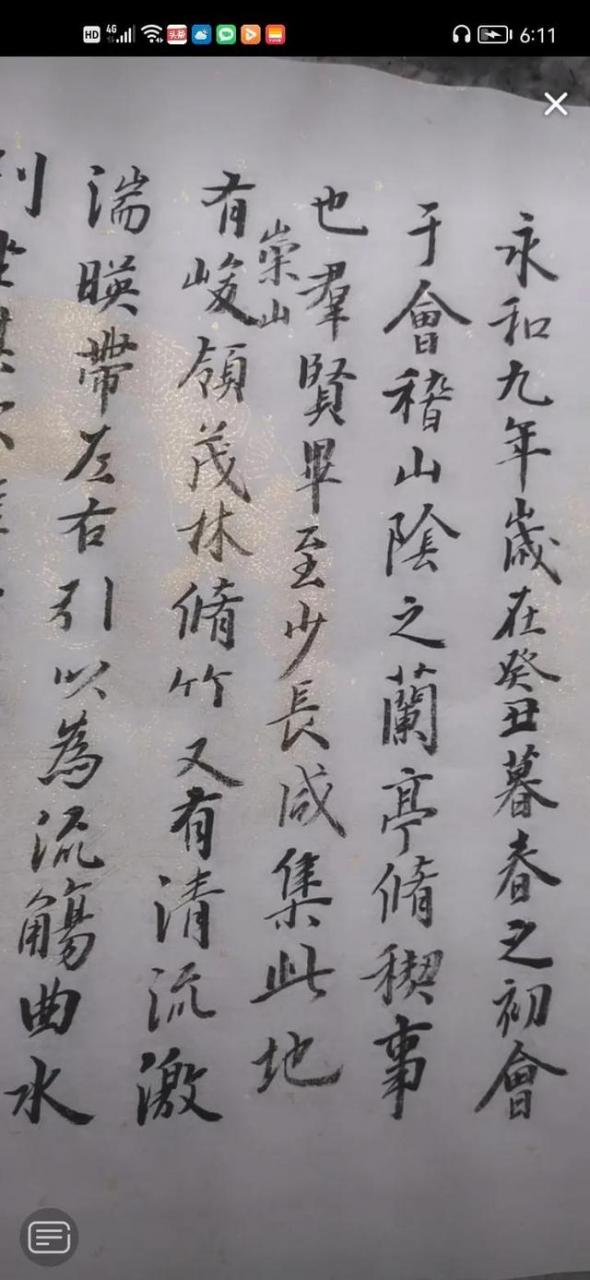 HD 4G 头条 6:11
永和九年歲在癸丑暮春之初會
于會稽山陰之蘭亭脩稧事
也羣賢畢至少長咸集此地
崇山
有峻領茂林脩竹又有清流激
湍暎帶左右引以為流觴曲水